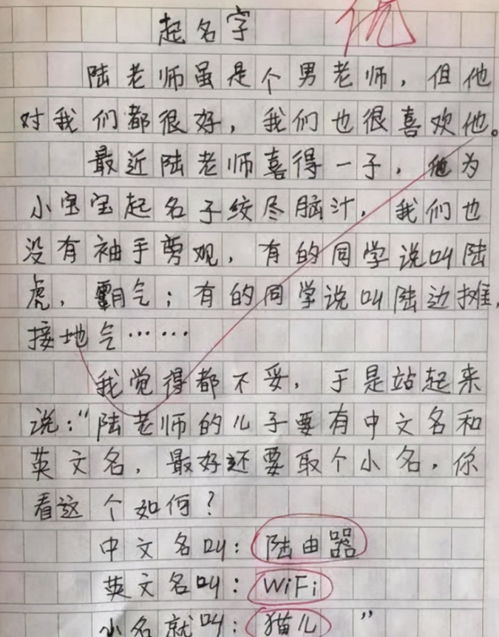 起名字
优
陆老师虽是个男老师，但他
对我们都很好，我们也很喜欢他。
最近陆老师喜得一子，他为
小宝宝起名子绞尽脑汁，我们也
没有袖手剪观，有的同学说叫陆
虎，霸气；有的同学说叫陆边摊，
接地气……
我觉得都不妥，于是站起来
说："陆老师的儿子要有中文名和
英文名，最好还要取个小名，你
看这个如何？
中文名叫：陆由器
英文名叫：WiFi
小名就叫：猫儿"